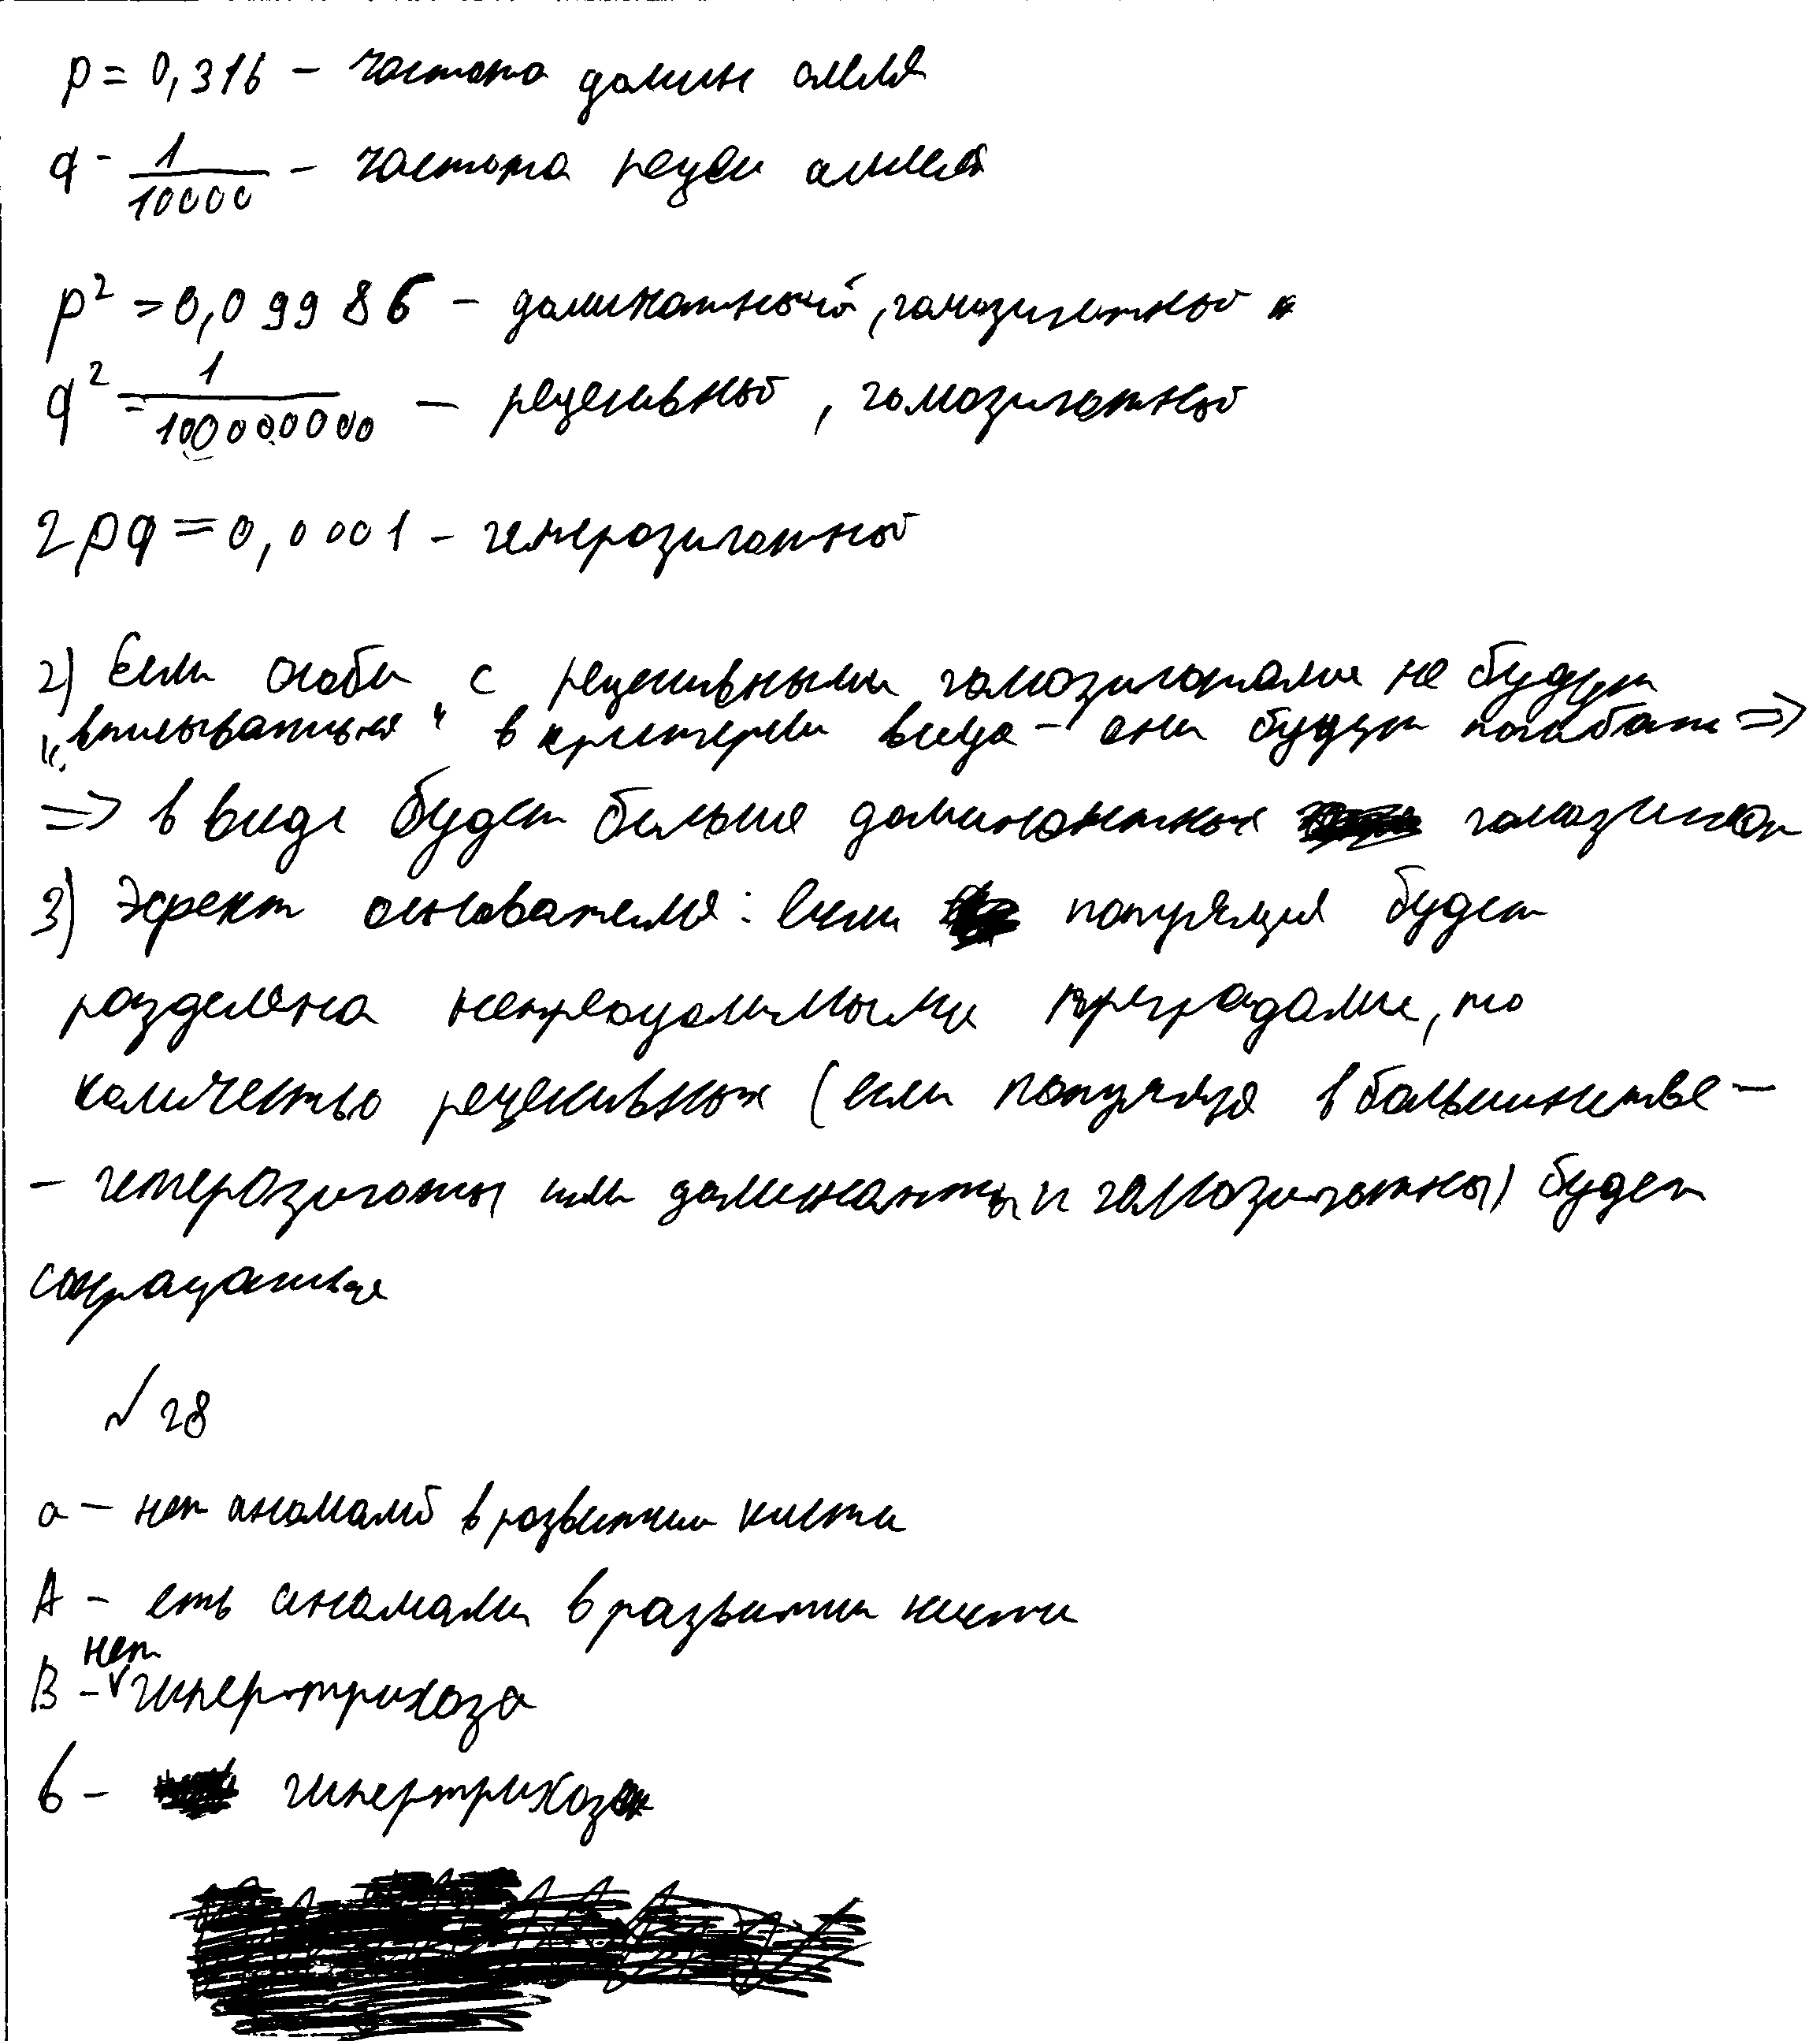 p = 0,316 – частота домин аллеля
q - 1/10000 – частота рецесси аллеля
p² = 0,09986 – доминатный, гомозиготный
q² = 1/100000000 – рецесивный, гомозиготный
2pq = 0,0001 – гетерозиготный
2) Если особи с рецесивными гомозиготами не будут
„вписываться" в критерии вида – они будут погибать =>
=> в виде будет больше доминантных гомозигот
3) Эфект основателя: если популяция будет
разделена непреодолимыми преградами, то
количество рецесивных (если популяция в большинстве –
– гетерозиготы или доминанты и гомозиготны) будет
сокращаться
√ 28
a – нет аномалий в развитии кисти
A – есть аномалии в развитии кисти
нет
B – √ гипертрихоза
b – гипертрихоз